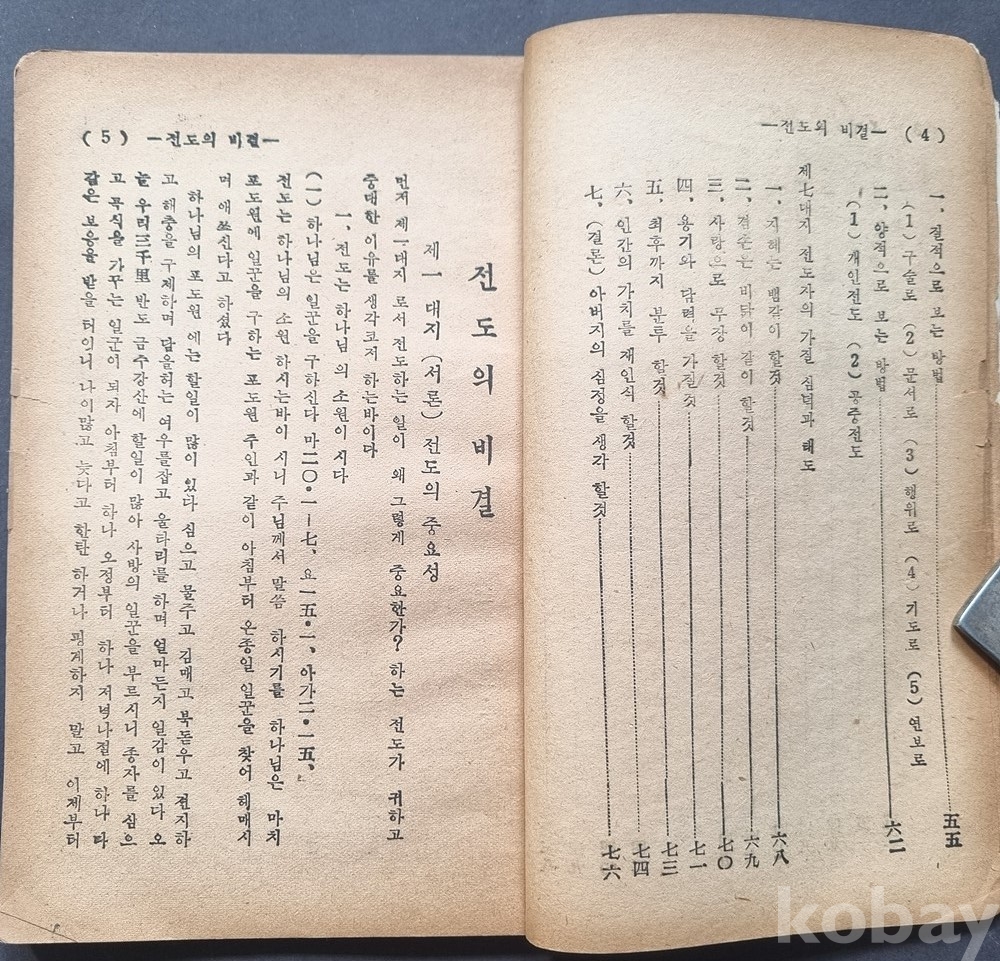 (4) ―전도의 비결―
一、질적으로 보는 방법 五五
(1) 구술로 (2) 문서로 (3) 행위로 (4) 기도로 (5) 연보로
二、양적으로 보는 방법 六二
(1) 개인전도 (2) 공중전도
제七대지 전도자의 가질 심덕과 태도
一、지혜는 뱀같이 할것 六八
二、겸손은 비닭이 같이 할것 六九
三、사랑으로 무장 할것 七〇
四、용기와 담력을 가질것 七一
五、최후까지 분투 할것 七三
六、인간의 가치를 재인식 할것 七四
七、(결론) 아버지의 심정을 생각 할것 七六
(5) ―전도의 비결―
전도의 비결
제一 대지 (서론) 전도의 중요성
먼저 제一대지 로서 전도하는 일이 왜 그렇게 중요한가? 하는 전도가 귀하고
중대한 이유를 생각코저 하는바이다
一、전도는 하나님의 소원이시다
(一) 하나님은 일꾼을 구하신다 마二〇·一―七、요一五·一、아가二·一五、
전도는 하나님의 소원 하시는바이 시니 주님께서 말씀 하시기를 하나님은 마치
포도원에 일꾼을 구하는 포도원 주인과 같이 아침부터 온종일 일꾼을 찾어 헤매시
며 애쓰신다고 하셨다
하나님의 포도원 에는 할일이 많이 있다 심으고 물주고 김매고 북돋우고 전지하
고 해충을 구제하며 담을허는 여우를잡고 울타리를 하며 얼마든지 일감이 있다 오
늘 우리三千里 반도 금수강산에 할일이 많아 사방의 일꾼을 부르시니 종자를 심으
고 곡식을 가꾸는 일군이 되자 아침부터 하나 오정부터 하나 저녁나절에 하나 다
같은 보응을 받을 터이니 나이많고 늦다고 한탄 하거나 핑계하지 말고 이제부터
kobay